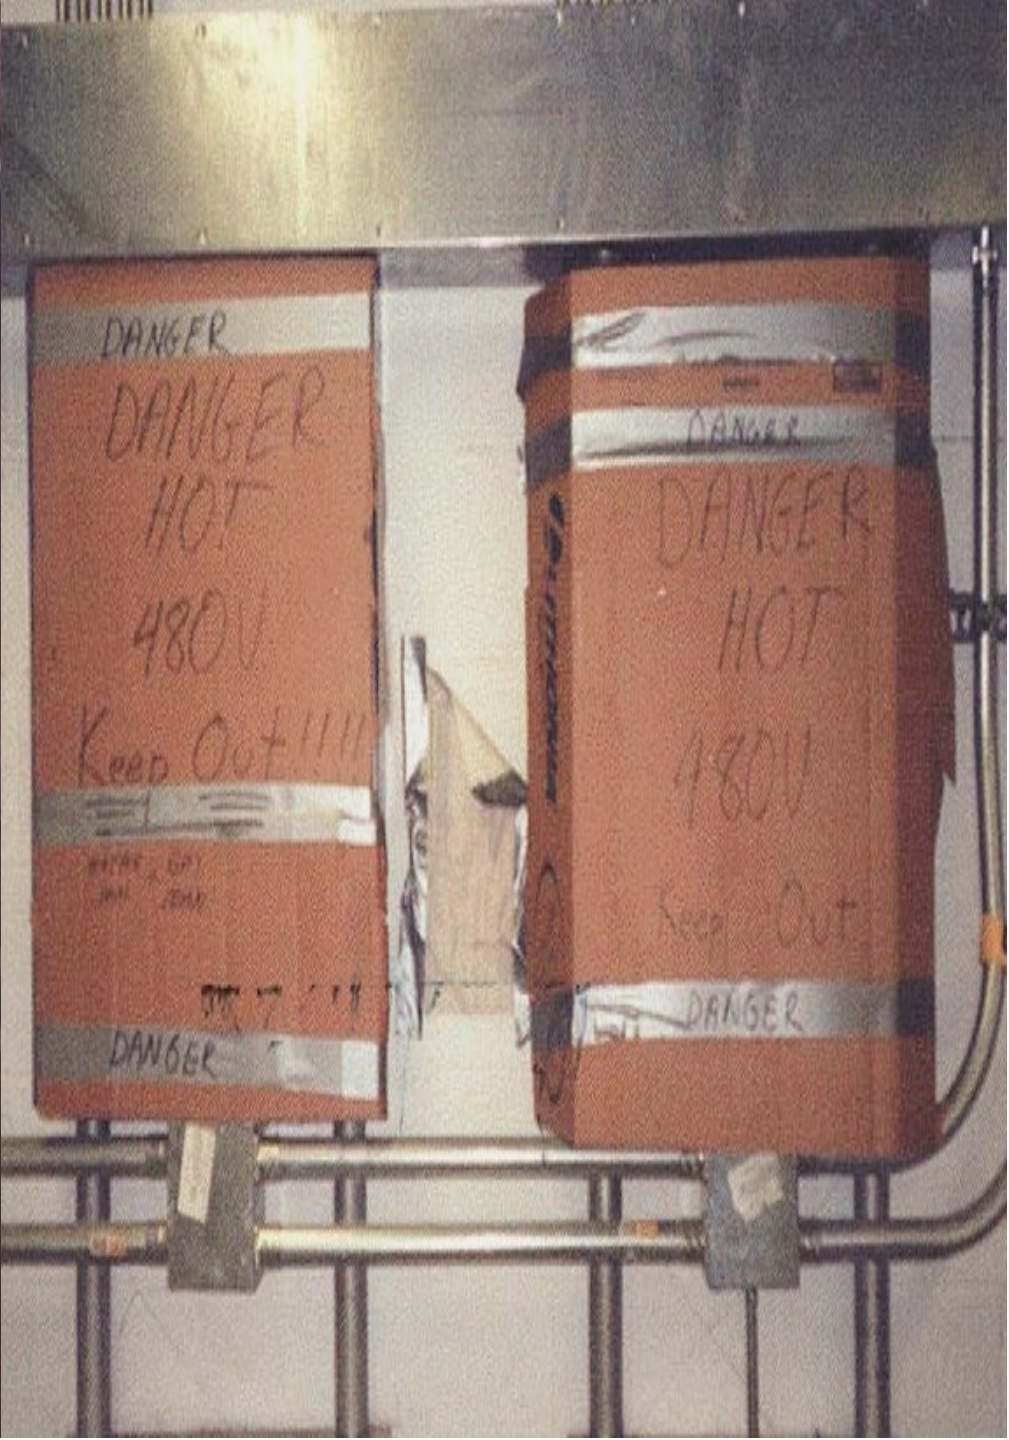 DANGER
DANGER
HOT
480V
Keep Out !!!!
DANGER
DANGER
DANGER
HOT
480V
Keep Out
DANGER